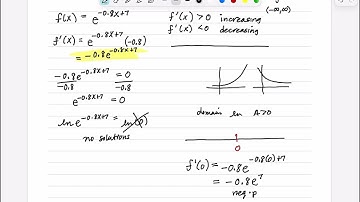 f(x) = e^{-0.8x+7}
f'(x) = e^{-0.8x+7} (-0.8)
= -0.8e^{-0.8x+7}
-0.8e^{-0.8x+7} = 0
-0.8 -0.8
e^{-0.8x+7} = 0
ln e^{-0.8x+7} = ln(0)
no solutions
(-∞,∞)
f'(x) > 0 increasing
f'(x) < 0 decreasing
domain
0
f'(0) = -0.8e^{-0.8(0)+7}
= -0.8e^7
neg.